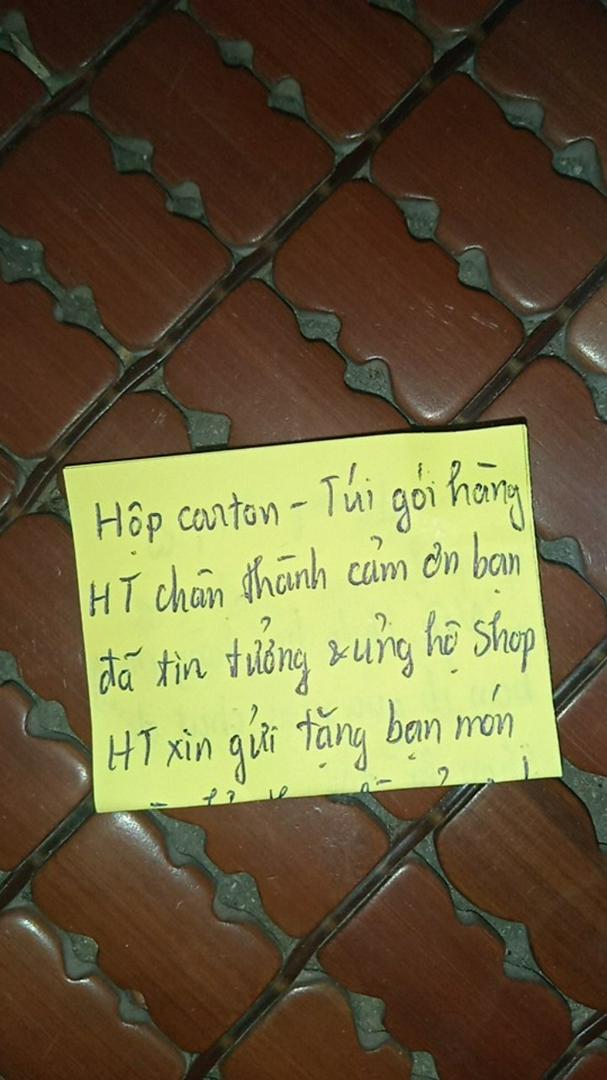 Hộp carton - Túi gói hàng
HT chân thành cảm ơn bạn
đã tin tưởng & ủng hộ Shop
HT xin gửi tặng bạn món